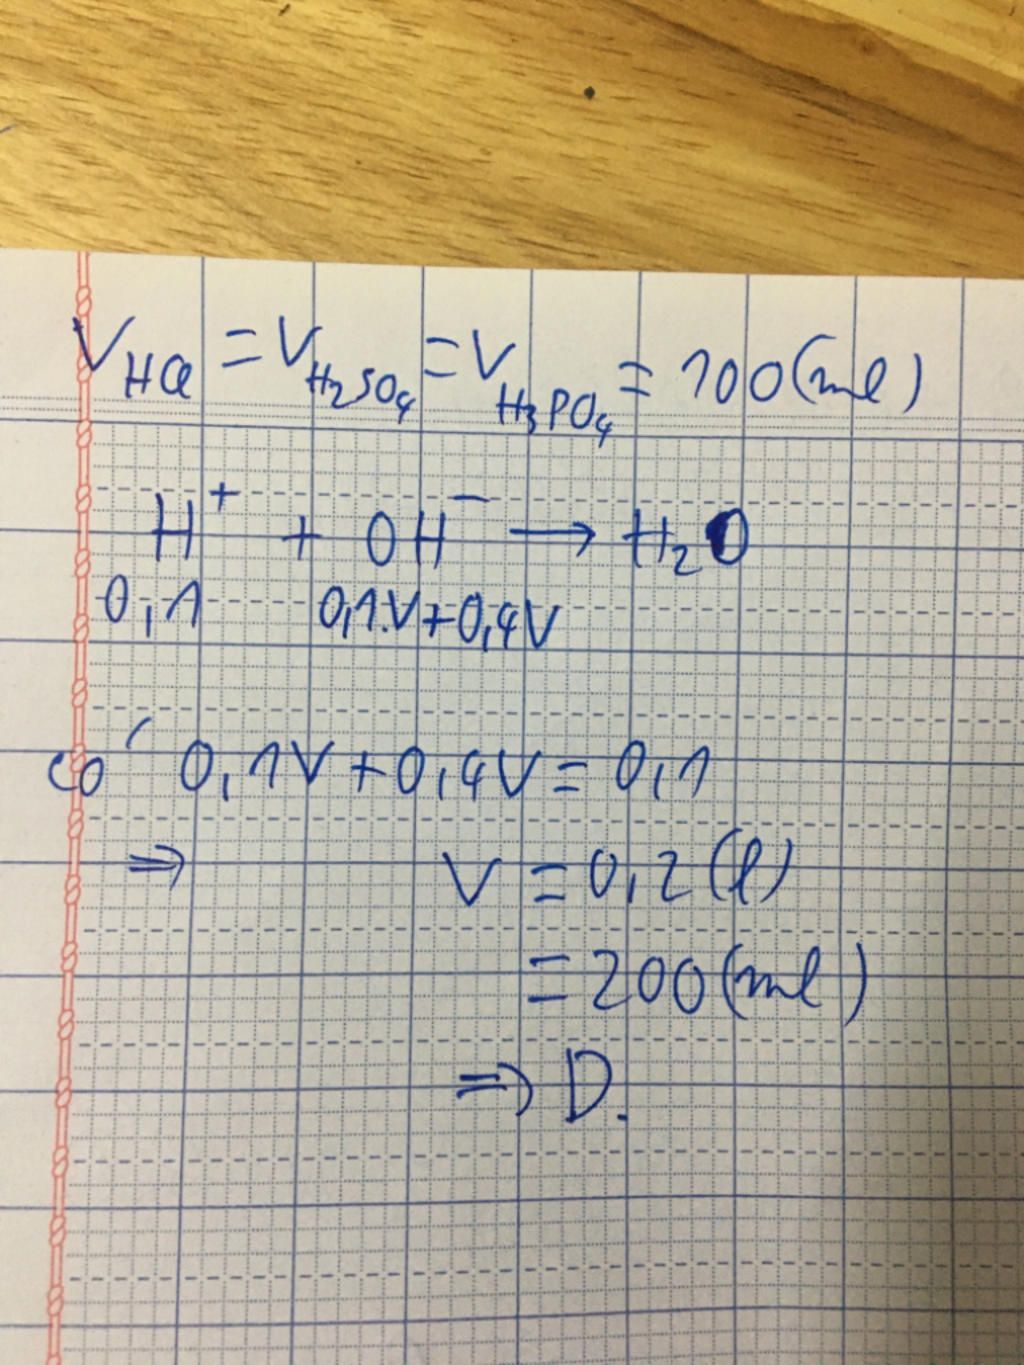 V_HCl = V_H₂SO₄ = V_H₃PO₄ = 100(ml)
H⁺ + OH⁻ → H₂O
0,1 0,1.V+0,4V
có 0,1V+0,4V=0,1
⇒ V = 0,2(l)
= 200(ml)
⇒ D.